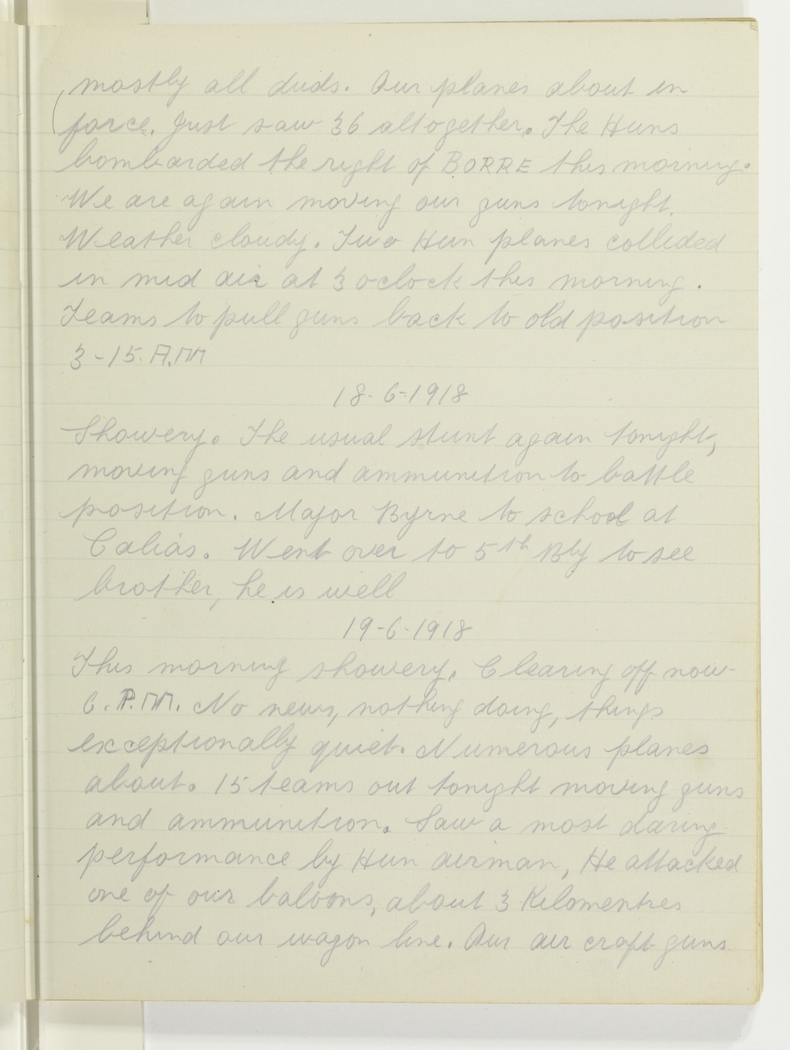 mostly all duds. Our planes about in
(force. Just saw 36 altogether. The Huns
bombarded the right of BORRE this morning.
We are again moving our guns tonight.
Weather cloudy. Two Hun planes collided
in mid air at 3 oclock this morning.
Teams to pull guns back to old position
3-15. A.M
18-6-1918
Showery. The usual stunt again tonight,
moving guns and ammunition to battle
position. Major Byrne to school at
Calias. Went over to 5th Bty to see
brother, he is well
19-6-1918
This morning showery. Clearing off now-
6. P.M. No news, nothing doing, things
exceptionally quiet. Numerous planes
about. 15 teams out tonight moving guns
and ammunition. Saw a most daring
performance by Hun airman, He attacked
one of our baloons, about 3 Kilomentres
behind our wagon line. Our air craft guns